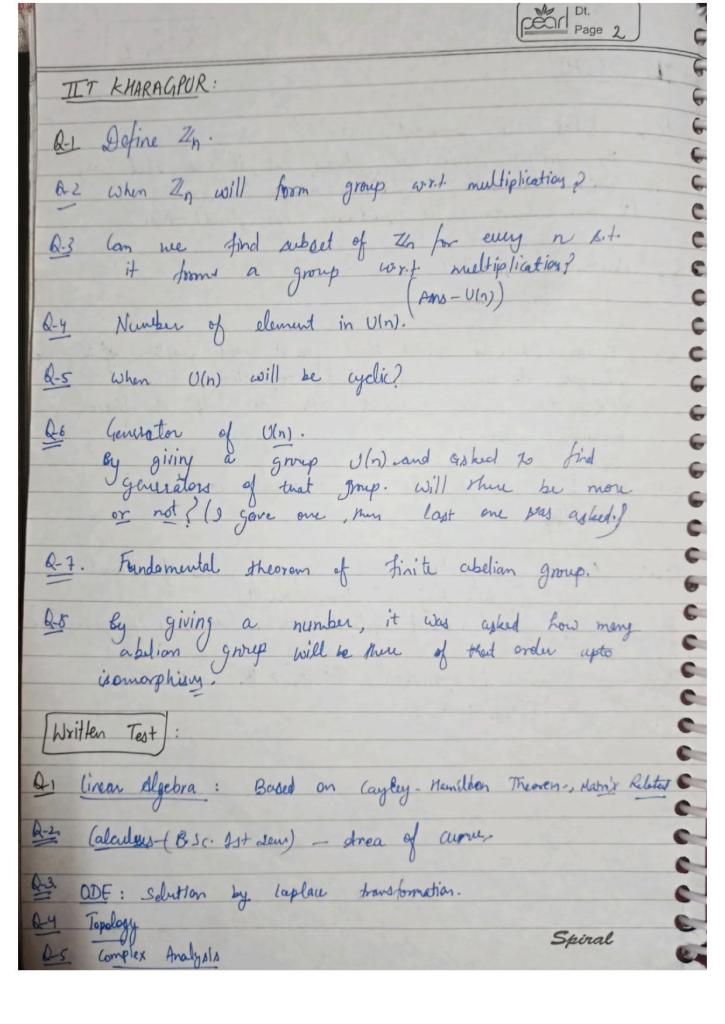 pearl
Dt.
Page 2
IIT KHARAGPUR:
Q-1 Define ℤn.
Q-2 When ℤn will form group w.r.t multiplication?
Q-3 Can we find subset of ℤn for every n s.t.
it forms a group w.r.t multiplication?
(Ans - U(n))
Q-4 Number of element in U(n).
Q-5 When U(n) will be cyclic?
Q-6 Generator of U(n).
By giving a group U(n) and asked to find
generators of that group. Will there be more
or not? (I gave one, then last one was asked.)
Q-7. Fundamental theorem of finite abelian group.
Q-8 By giving a number, it was asked how many
abelian group will be there of that order upto
isomorphism.
Written Test :
Q1 Linear Algebra : Based on Cayley-Hamilton Theorem-, Matrix Related
Q-2. Calculus-(BSc. 1st sem) - Area of curves
Q-3 ODE : Solution by laplace transformation.
Q-4 Topology
Q-5 Complex Analysis
Spiral